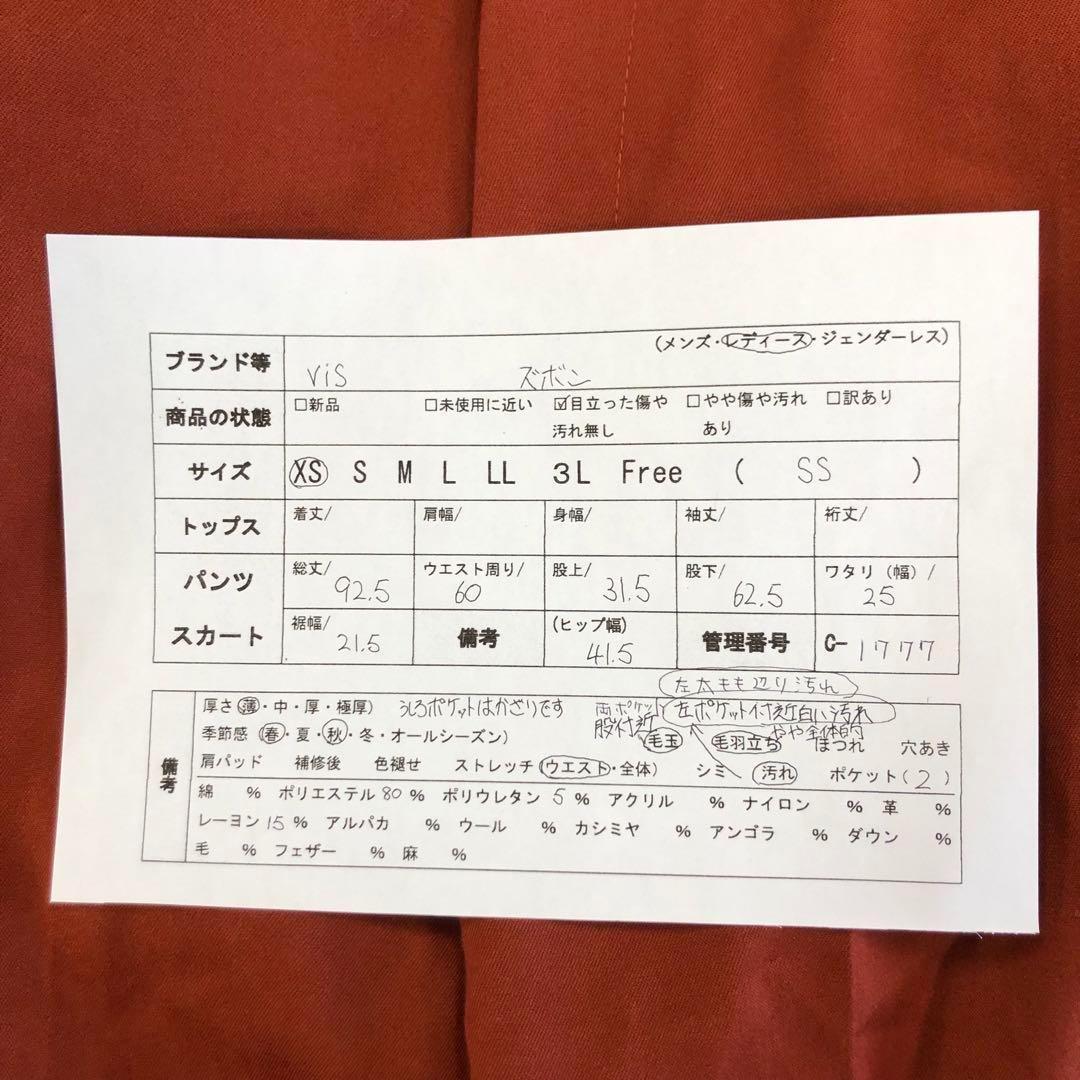 (メンズ・レディース・ジェンダーレス)
ブランド等 ViS ズボン
商品の状態 □新品 □未使用に近い ☑目立った傷や汚れ無し □やや傷や汚れあり □訳あり
サイズ XS S M L LL 3L Free ( SS )
トップス 着丈/ 肩幅/ 身幅/ 袖丈/ 裄丈/
パンツ 総丈/ 92.5 ウエスト周り/ 60 股上/ 31.5 股下/ 62.5 ワタリ(幅)/ 25
スカート 裾幅/ 21.5 備考 (ヒップ幅) 41.5 管理番号 C-1777
左太もも辺り汚れ
備考
厚さ(薄・中・厚・極厚) うしろポケットはかざりです 両ポケット 股付近 左ポケット付近白い汚れ
やや全体的
季節感(春・夏・秋・冬・オールシーズン) 毛玉 毛羽立ち ほつれ 穴あき
肩パッド 補修後 色褪せ ストレッチ(ウエスト・全体) シミ 汚れ ポケット(2)
綿 % ポリエステル 80 % ポリウレタン 5 % アクリル % ナイロン % 革 %
レーヨン 15 % アルパカ % ウール % カシミヤ % アンゴラ % ダウン %
毛 % フェザー % 麻 %